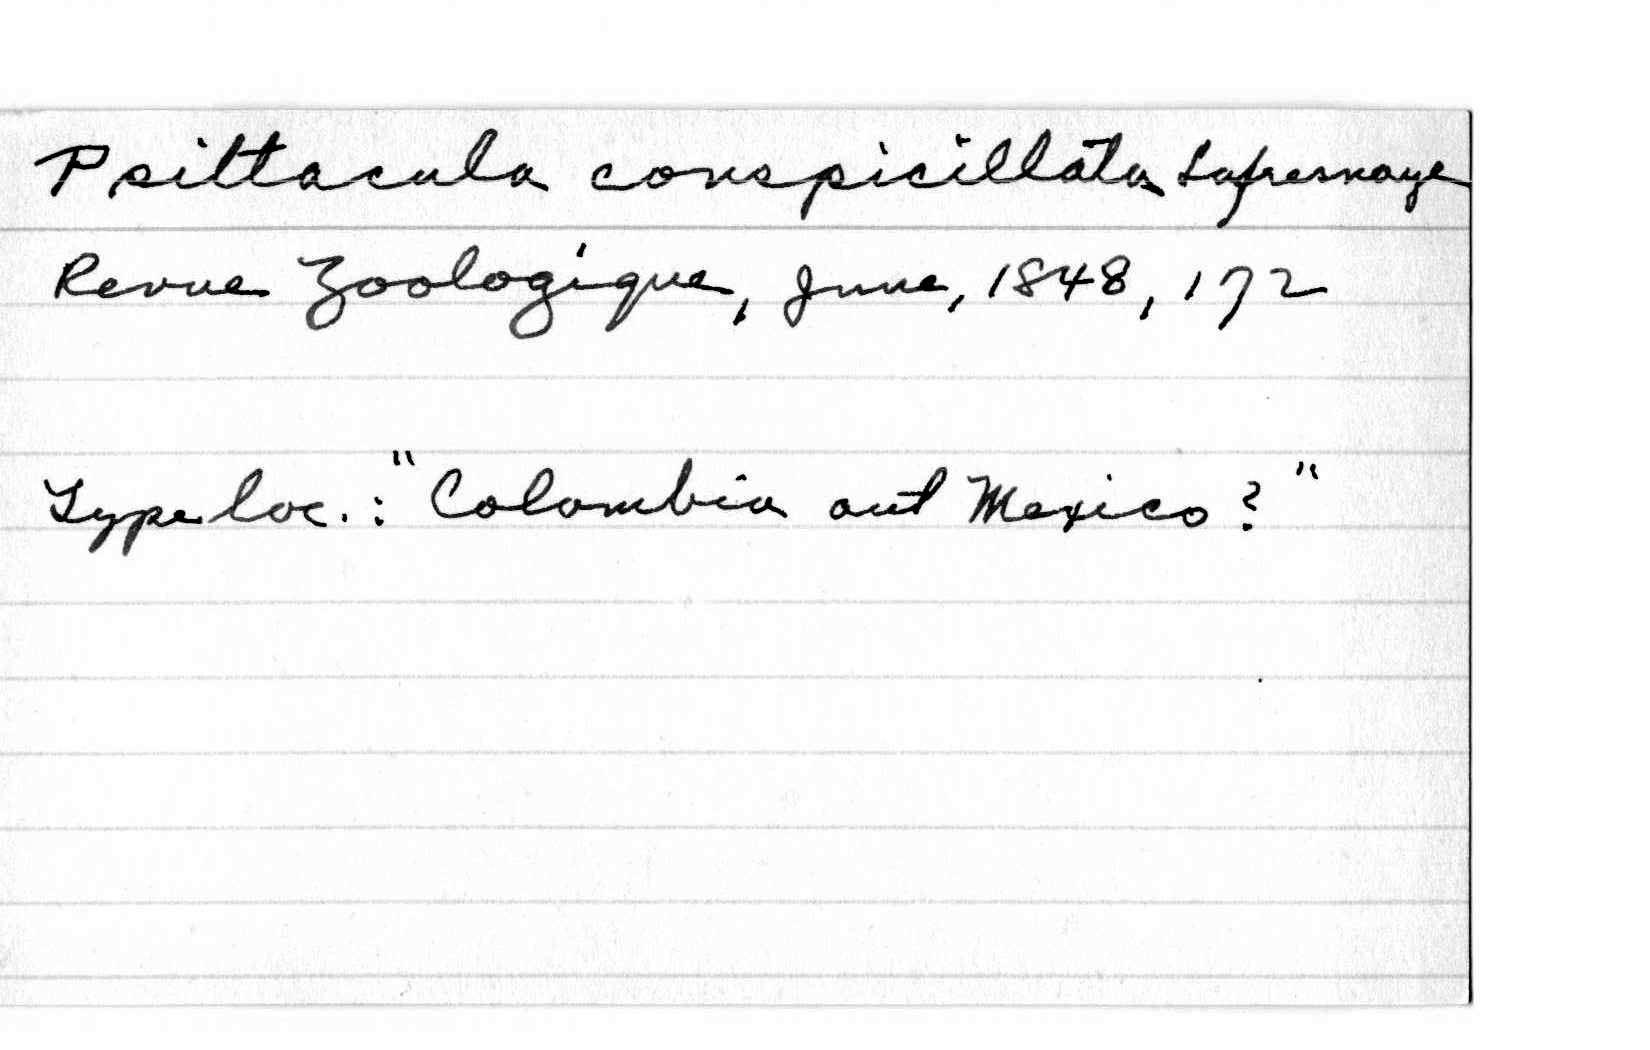 Psittacula conspicillata Lafresnaye
Revue Zoologique, June, 1848, 172
Type loc.: "Colombia aut Mexico?"